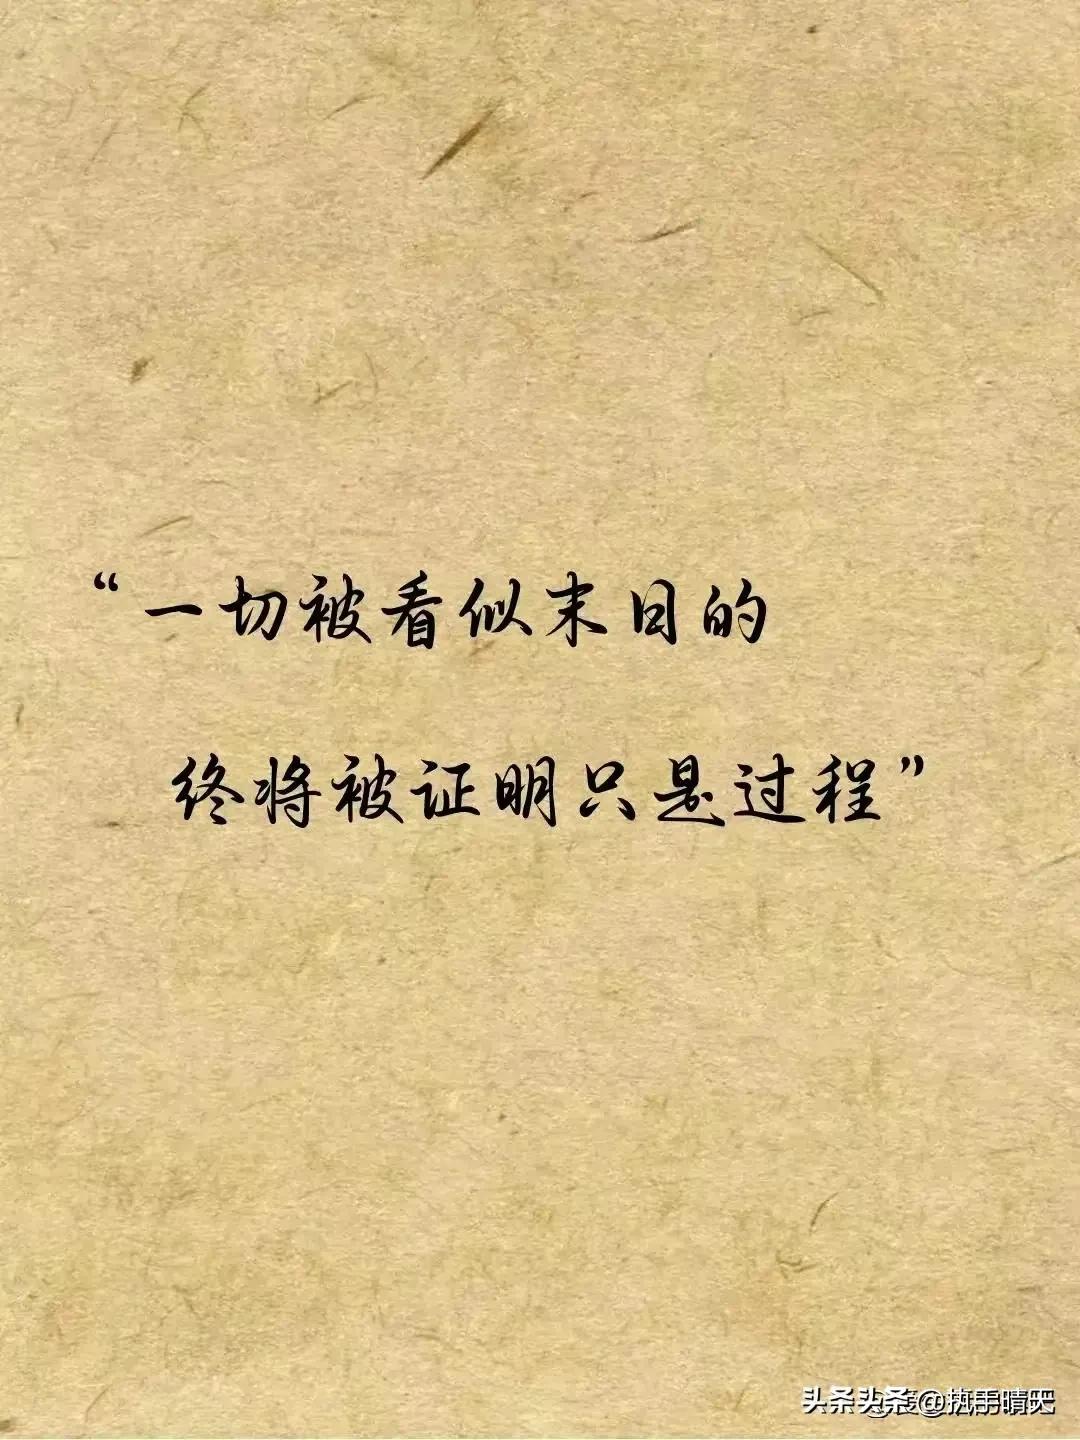 “一切被看似末日的
终将被证明只是过程”
头条 @执手晴天